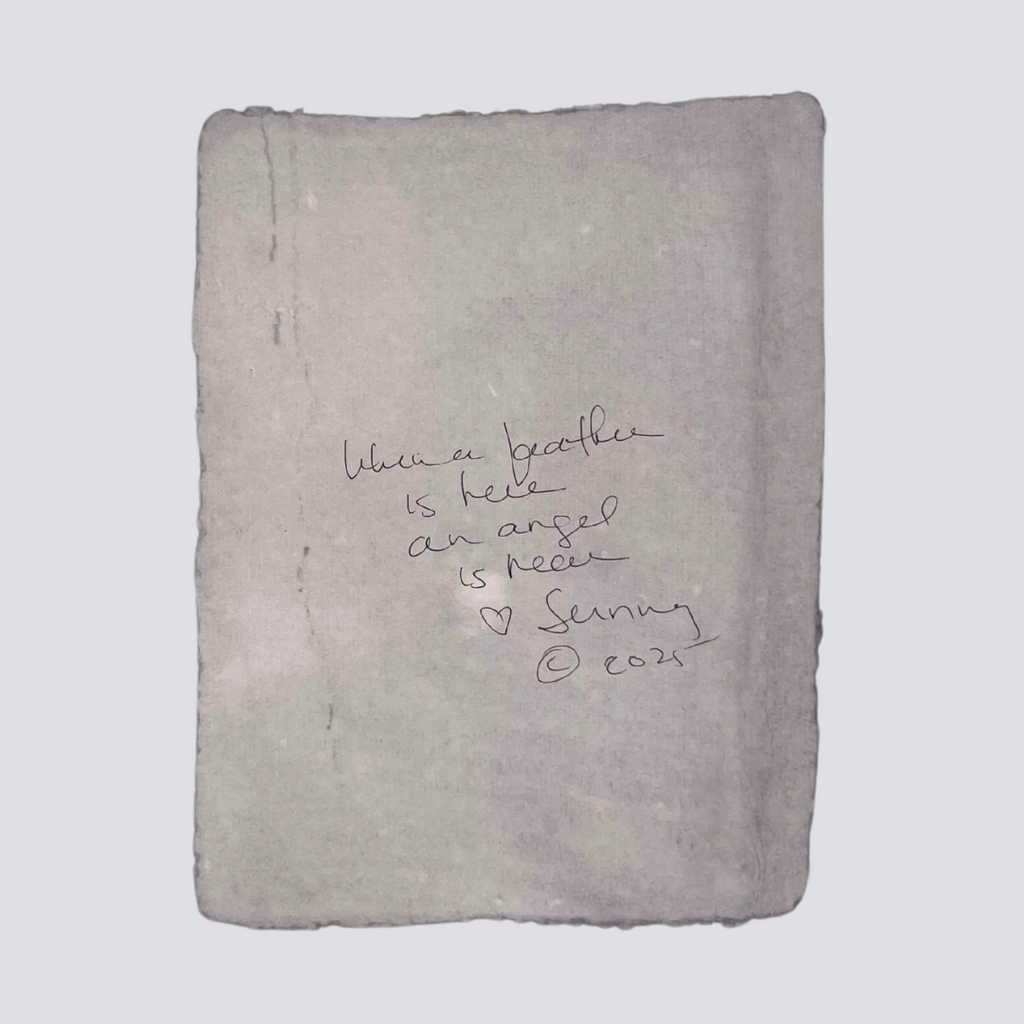 When a feather
is here
an angel
is near
♡ Sunny
© 2025